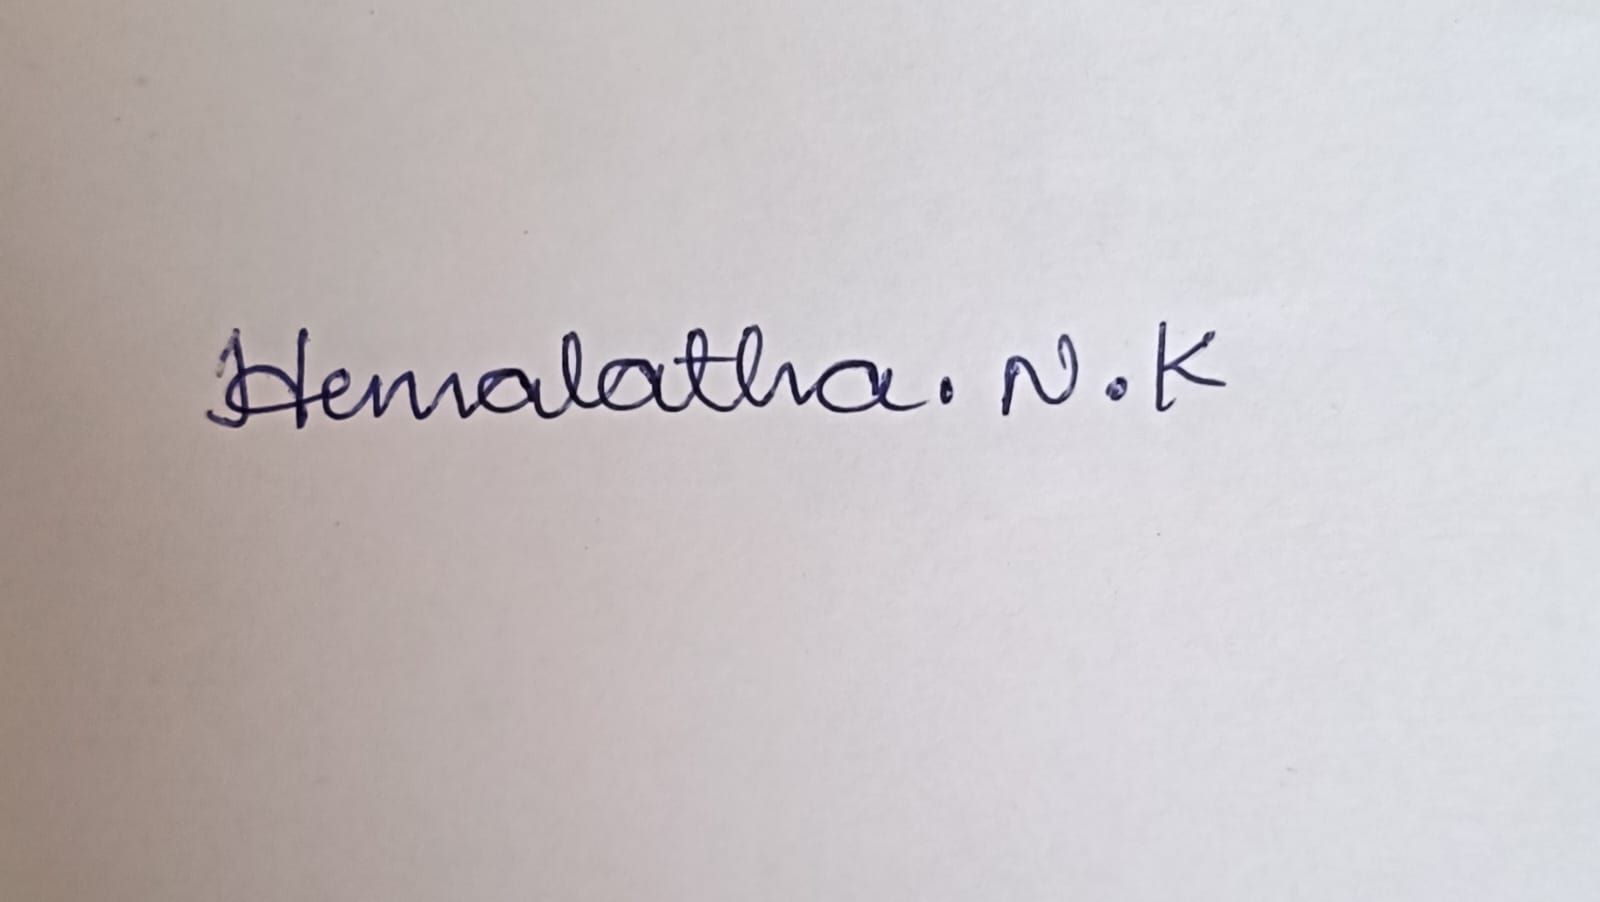 Hemalatha. N. K